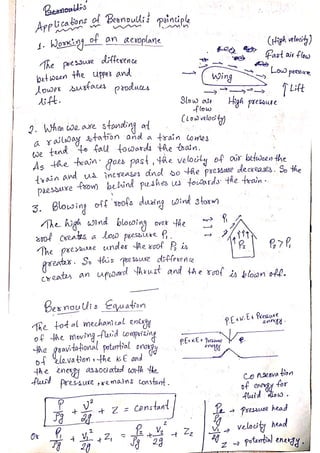 Bernoullis
Applications of Bernoulli's principle
1. Working of an aeroplane
The pressure difference
between the upper and
lower surfaces produces
lift.
(High velocity)
Fast air flow
Low pressure
Wing
Lift
Slow air flow
(Low velocity)
High pressure
2. When we are standing at
a railway station and a train comes
we tend to fall towards the train.
As the train goes past, the velocity of air between the
train and us increases and so the pressure decreases. So the
pressure from behind pushes us towards the train.
3. Blowing off roofs during wind storm
The high wind blowing over the
roof creates a low pressure P₁.
The pressure under the roof P₂ is
greater. So this pressure difference
creates an upward thrust and the roof is blown off.
P₁
P₂
P₂ > P₁
Bernoullis Equation
The total mechanical energy
of the moving fluid comprising
the gravitational potential energy
of elevation, the KE and
the energy associated with the
fluid pressure, remains constant.
P/ρg + v²/2g + Z = constant
Or P₁/ρg + v₁²/2g + Z₁ = P₂/ρg + v₂²/2g + Z₂
PE+K.E+ Pressure energy
PE+KE+ Pressure energy
Conservation
of energy for
fluid flow.
→ pressure head
→ velocity head
Z → potential energy.